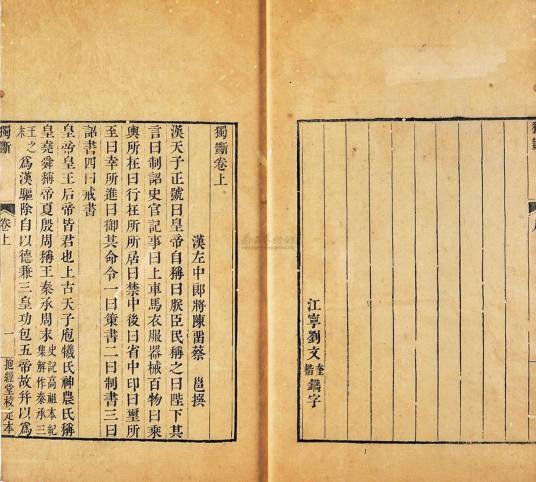 江寧劉文奎楷鐫字
獨斷卷上
漢左中郎將陳畱蔡 邕撰
漢天子正號曰皇帝自稱曰朕臣民稱之曰陛下其
言曰制詔史官記事曰上車馬衣服器械百物曰乘
輿所在曰行在所所居曰禁中後曰省中印曰璽所
至曰幸所進曰御其命令一曰策書二曰制書三曰
詔書四曰戒書
皇帝皇王后帝皆君也上古天子庖犧氏神農氏稱
皇堯舜稱帝夏殷周稱王秦承周末史記高祖本紀集解作秦承三
王之末爲漢驅除自以德兼三皇功包五帝故幷以爲
獨斷 卷上 一 抱經堂校定本